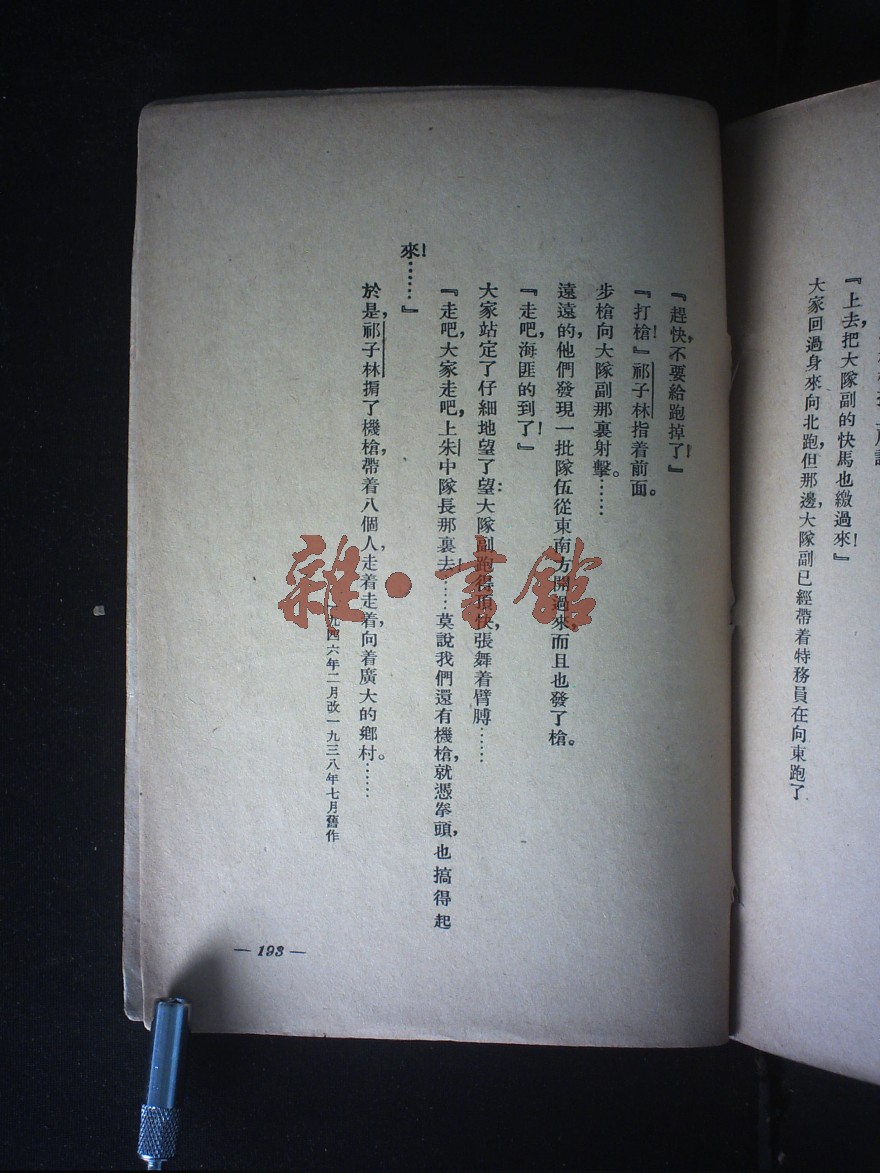 『上去，把大隊副的快馬也繳過來！』
大家回過身來向北跑，但那邊，大隊副已經帶着特務員在向東跑了
『趕快，不要給跑掉了！』
『打槍！』祁子林指着前面。
步槍向大隊副那裏射擊。……
遠遠的，他們發現一批隊伍從東南方開過來，而且也發了槍。
『走吧，海匪的到了！』
大家站定了仔細地望了望：大隊副跑得頂快，張舞着臂膊……
『走吧，大家走吧，上朱中隊長那裏去！……莫說我們還有機槍，就憑拳頭，也搞得起
來！……』
於是，祁子林掮了機槍，帶着八個人，走着走着，向着廣大的鄉村。……
一九四六年二月改一九三八年七月舊作
— 193 —
雜·書館